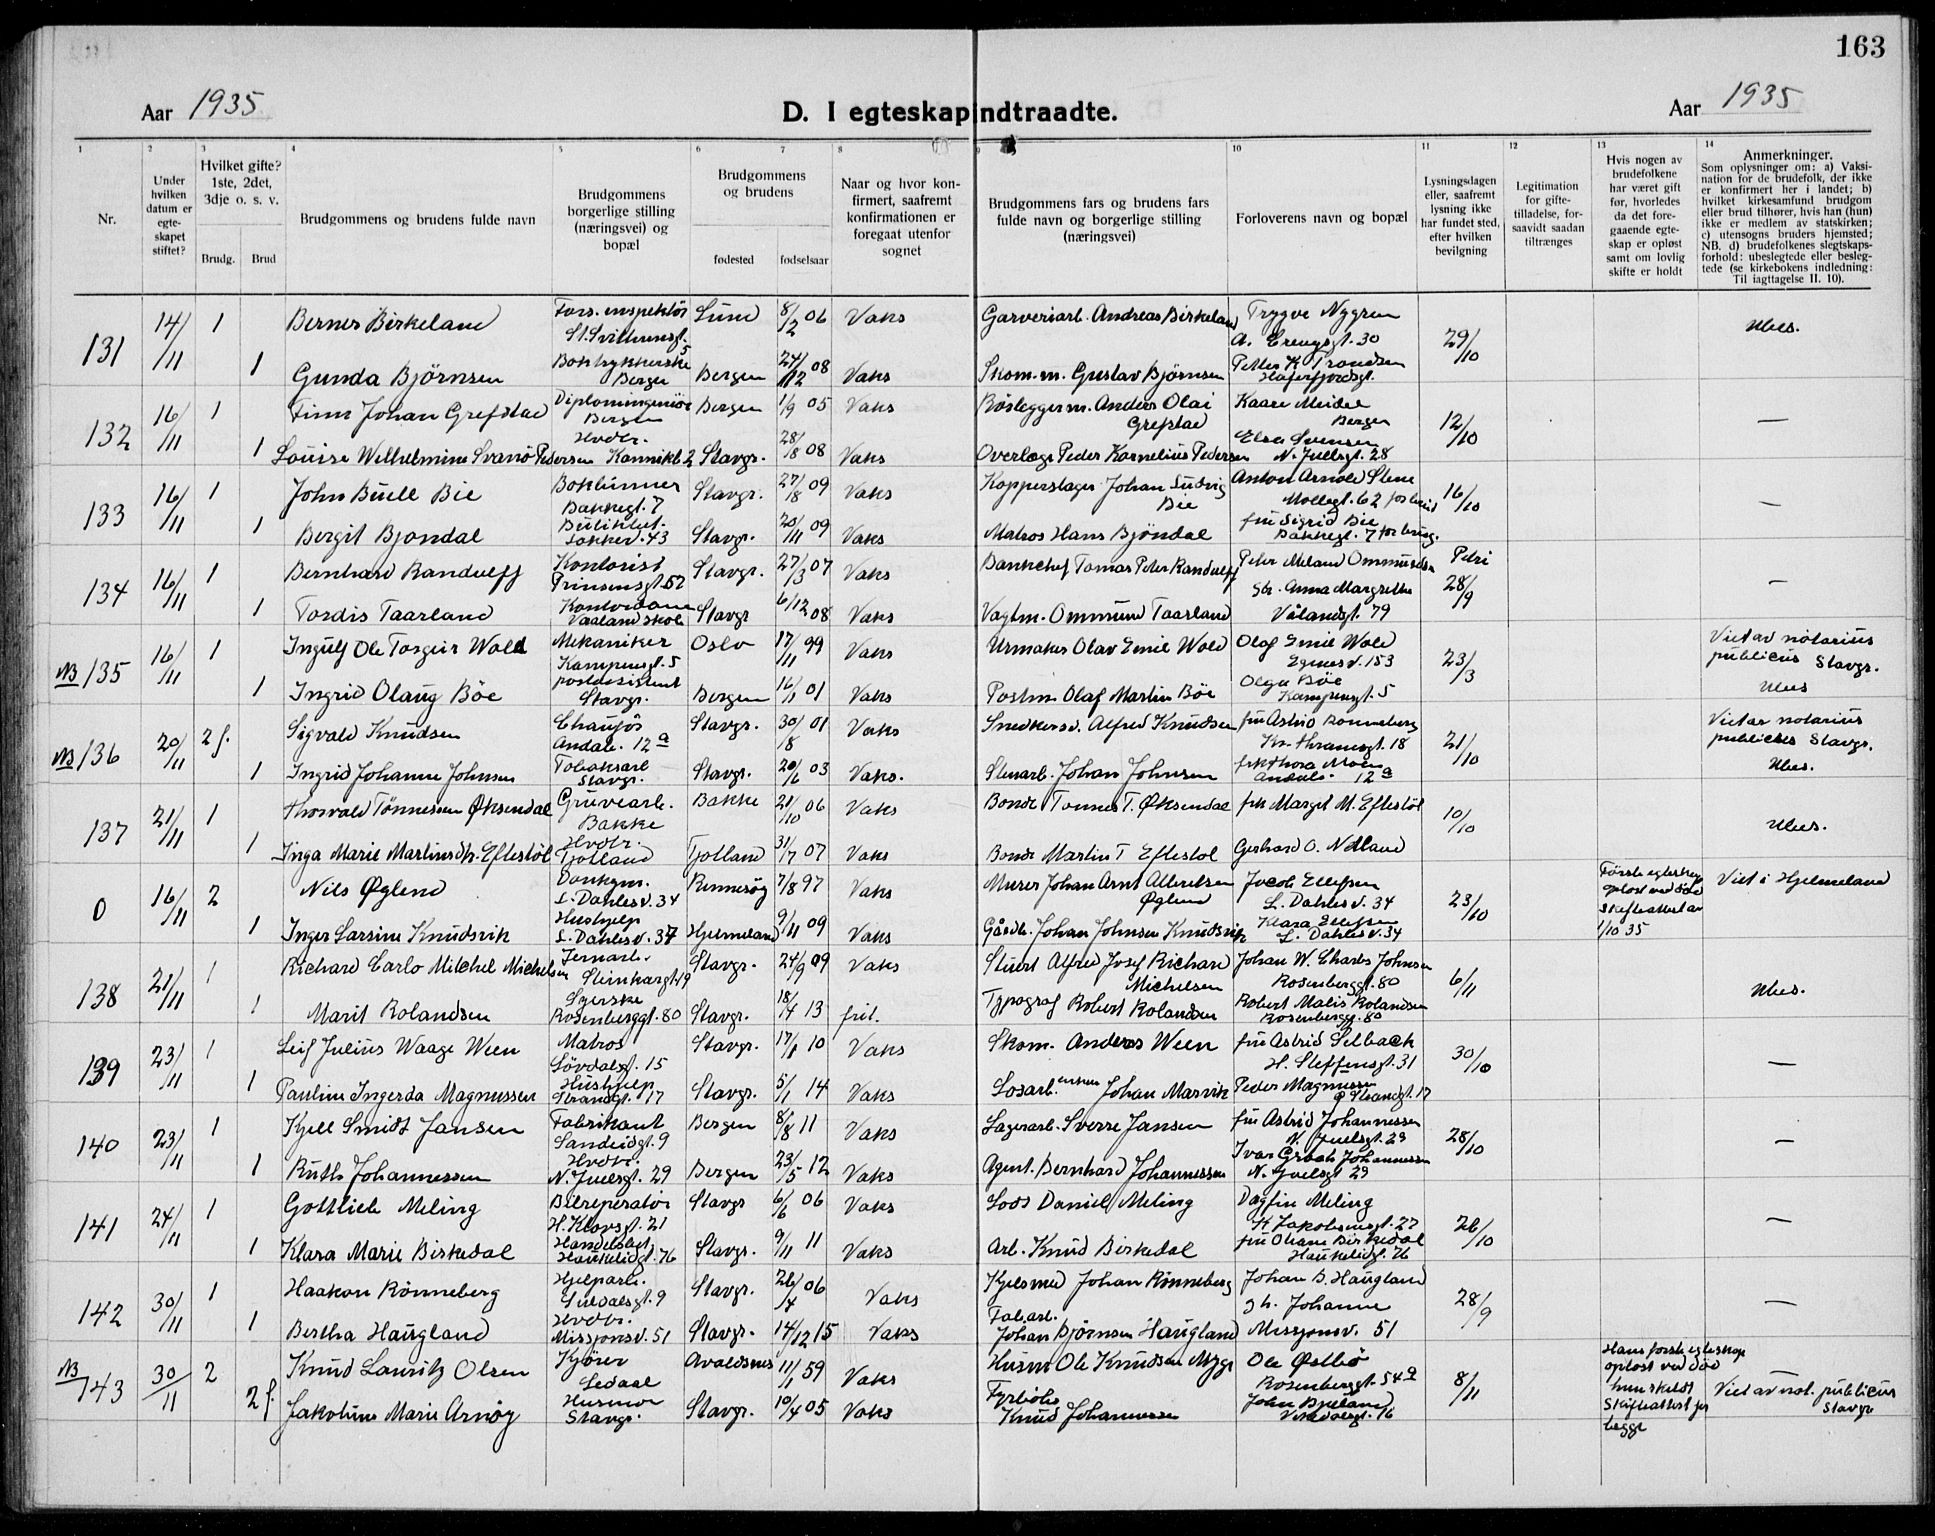 163
Aar 1935
D. I egteskap indtraadte.
Aar 1935
1 2 3 4 5 6 7 8 9 10 11 12 13 14
Nr.
Under hvilken datum er egteskapet stiftet?
Hvilket gifte? 1ste, 2det, 3dje o. s. v.
Brudg. Brud
Brudgommens og brudens fulde navn
Brudgommens borgerlige stilling (næringsvei) og bopæl
Brudgommens og brudens
fødested fødselsaar
Naar og hvor konfirmert, saafremt konfirmationen er foregaat utenfor sognet
Brudgommens fars og brudens fars fulde navn og borgerlige stilling (næringsvei)
Forloverens navn og bopæl
Lysningsdagen eller, saafremt lysning ikke har fundet sted, efter hvilken bevilgning
Legitimation for giftetilladelse, forsaavidt saadan tiltrænges
Hvis nogen av brudefolkene har været gift før, hvorledes da det foregaaende egteskap er opløst samt om lovlig skifte er holdt
Anmerkninger.
Som oplysninger om: a) Vaksination for de brudefolk, der ikke er konfirmert her i landet; b) hvilket kirkesamfund brudgom eller brud tilhører, hvis han (hun) ikke er medlem av statskirken; c) utensogns bruders hjemsted; NB. d) brudefolkenes slegtskapsforhold: ubeslegtede eller beslegtede (se kirkebokens indledning: Til iagttagelse II. 10).
131 14/11 1 Berner Birkeland Fors. inspektör St. Svithunsgt. 5 Lund 8/2 06 Vaks Garveriarb. Andreas Birkeland Trygve Nygren 30 29/10 Ubes.
1 Gunda Björnsen Boktrykkerske Bergen Bergen 24/12 08 Vaks Skom.m. Gustav Björnsen Petter K Trondsen Hafrsfjordsgt.
132 16/11 1 Finn Johan Grefstad Diplomingeniör Bergen Bergen 1/9 05 Vaks Rörleggerm. Anders Olai Grefstad Kaare Meidel Bergen 12/10 —
1 Louise Wilhelmine Svanö Pedersen Hvdtr. Kannikbt. 2 Stavgr. 28/8 08 Vaks Overlæge Peder Kornelius Pedersen Elsa Svensen N. Juelsgt. 28
133 16/11 1 John Buell Bie Bokbinner Bakkegt. 7 Stavgr. 27/8 09 Vaks Kopperslager Johan Ludvig Bie Anton Arnold Stene Möllegt. 62 for brud 16/10 —
1 Bergit Bjondal Butikbet. 43 Stavgr. 20/11 09 Vaks Matros Hans Bjöndal fru Sigrid Bie Bakkegt. 7 for brudg.
134 16/11 1 Bernhard Randulff Kontorist Prinsensgt. 52 Stavgr. 27/3 07 Vaks Bankchef Tomas Peter Randulff Peter Meland Ommundsen Petri 28/9 —
1 Tordis Taarland Kontordame Vaaland skole Stavgr 6/12 08 Vaks Vagtm. Ommund Taarland Anna Margrethe Vålandsgt. 79
NB 135 16/11 1 Ingulf Ole Torgeir Wold Mekaniker Kampensgt. 5 Oslo 17/11 99 Vaks Urmaker Olav Emil Wold Olaf Emil Wold 153 23/3 Viet av notarius publicus Stavgr.
1 Ingrid Olaug Böe postassistent Stavgr. Bergen 16/1 01 Vaks Postm. Olaf Martin Böe Olga Böe Kampensgt. 5 Ubes
NB 136 20/11 2 f. Sigvald Knudsen Chauför 12 a Stavgr. 30/8 01 Vaks Snedkersv. Alfred Knudsen fru Astrid Ronneberg 18 21/10 Viet av notarius publicus Stavgr.
1 Ingrid Johanne Johnsen Tobaksarb Stavgr. Stavgr. 20/6 03 Vaks. Stuarb. Johan Johnsen frk Thora Moen 12 a Ubes.
137 21/11 1 Thorvald Tönnessen Øksendal Gruvearb. Bakke Bakke 21/10 06 Vaks Bonde Tonnes T. Øksendal frk Margit M. Eftestöl 10/10 Ubes.
1 Inga Marie Martinsdtr. Eftestöl Hvdtr. Fjotland Fjotland 31/7 07 Vaks Bonde Martin T Eftestol Gerhard O. Netland
0 16/11 2 Nils Øglend L. Dahlesv. 34 Rennesöy 7/8 97 Vaks Murer Johan Arnt Albretsen Øglend Jacob Ellefsen L. Dahlesv. 34 23/10 Förste egteskap oplöst ved död Skifteattest av 1/10 35 Viet i Hjelmeland
1 Inger Larsine Knudsvik Hushjelp L. Dahlesv. 37 Hjelmeland 9/11 09 Vaks Gårdb. Johan Johnsen Knudsvik Klara Ellefsen L. Dahlesv. 34
138 21/11 1 Richard Carlo Milchel Michelsen Jernarb. Steinkargt. 49 Stavgr. 24/9 09 Vaks Stuert Alfred Josef Richard Michelsen Johan W. Charles Johnsen Rosenberggt. 80 6/11 Ubes.
1 Marit Rolandsen Syerske Rosenberggt. 80 Stavgr. 18/4 13 frit. Typograf Robert Rolandsen Robert Malis Rolandsen Rosenberggt. 80
139 23/11 1 Leif Julius Waage Ween Matros Lövdalsgt. 15 Stavgr. 17/1 10 Vaks Skom. Anders Ween fru Astrid Selback H. Steffensgt. 31 30/10 —
1 Pauline Ingerda Magnussen Hushjelp Strandgt. 17 Stavgr. 5/1 14 Vaks Losarb. Johan Marvik Peder Magnussen Ø Strandgt. 17
140 23/11 1 Kjell Smidt Jansen Fabrikant Sandeidgt. 9 Bergen 8/8 11 Vaks Lagerarb. Sverre Jansen fru Astrid Johannessen N. Juelsgt. 29 28/10 —
1 Ruth Johannessen Hvdtr. N. Juelsgt. 29 Bergen 23/5 12 Vaks Agent. Bernhard Johannessen Ivar Johannessen N. Juelsgt 29
141 24/11 1 Gottlieb Meling Bilreparatör 21 Stavgr 6/6 06 Vaks Lods Daniel Meling Dagfin Meling K Jakobsensgt. 27 26/10 —
1 Klara Marie Birkedal Handelsbet. Haukeligt. 76 Stavgr. 9/11 11 Vaks Arb. Knud Birkedal fru Birkedal Haukeligt. 76
142 30/11 1 Haakon Rönneberg Hjelparb. 9 Stavgr. 26/4 06 Vaks Kjelsmed Johan Rönneberg Johan B. Haugland 28/9 —
1 Bertha Haugland Hvdtr. Missjonsv. 51 Stavgr. 14/12 15 Vaks Fabarb. Johan Björnsen Haugland gh. Johanne Missjonsv. 51
NB 143 30/11 2 Knud Lauritz Olsen Kjörer Ledaal Avaldsnes 11/1 59 Vaks Husm Ole Knudsen Myge Ole Østbö Rosenberggt. 54 a 8/11 Hans forste egteskap oplöst ved död hun skildt Skifteattest for begge Viet av not. publicus Stavgr
2 f. Jakobine Marie Arnöy Husmor Stavgr. Stavgr. 10/4 05 Vaks Fyrböter Knud Johannessen John Bjelland 16